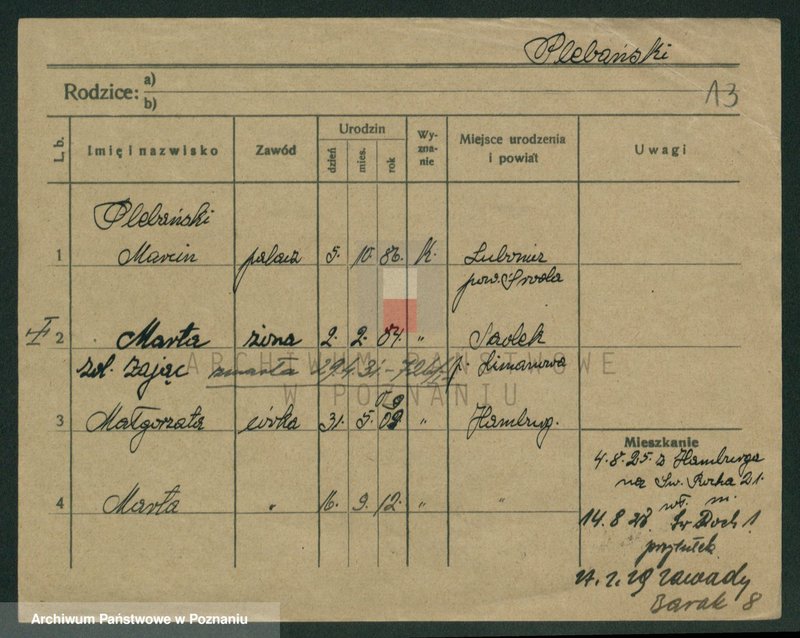 Plebański
Rodzice: a)
b)
13
L. b. Imię i nazwisko Zawód Urodzin dzień mies. rok Wyznanie Miejsce urodzenia i powiat Uwagi
Plebański
1 Marcin palacz 5. 10. 86. K. Lubonicz
pow. Środa
II 2 Marta żona 2. 2. 84. „
zd. Zając zmarła 29.4.31 p. Limanowa
09
3 Małgorzata córka 31. 5. „ Hamburg.
Mieszkanie
4.8.25 z Hamburga
na Św. Rocha 21.
4 Marta „ 16. 9. 12. „ „
14.8 Św Roch 1
przytułek
Zawady
Barak 8
ARCHIWUM PAŃSTWOWE
W POZNANIU
Archiwum Państwowe w Poznaniu